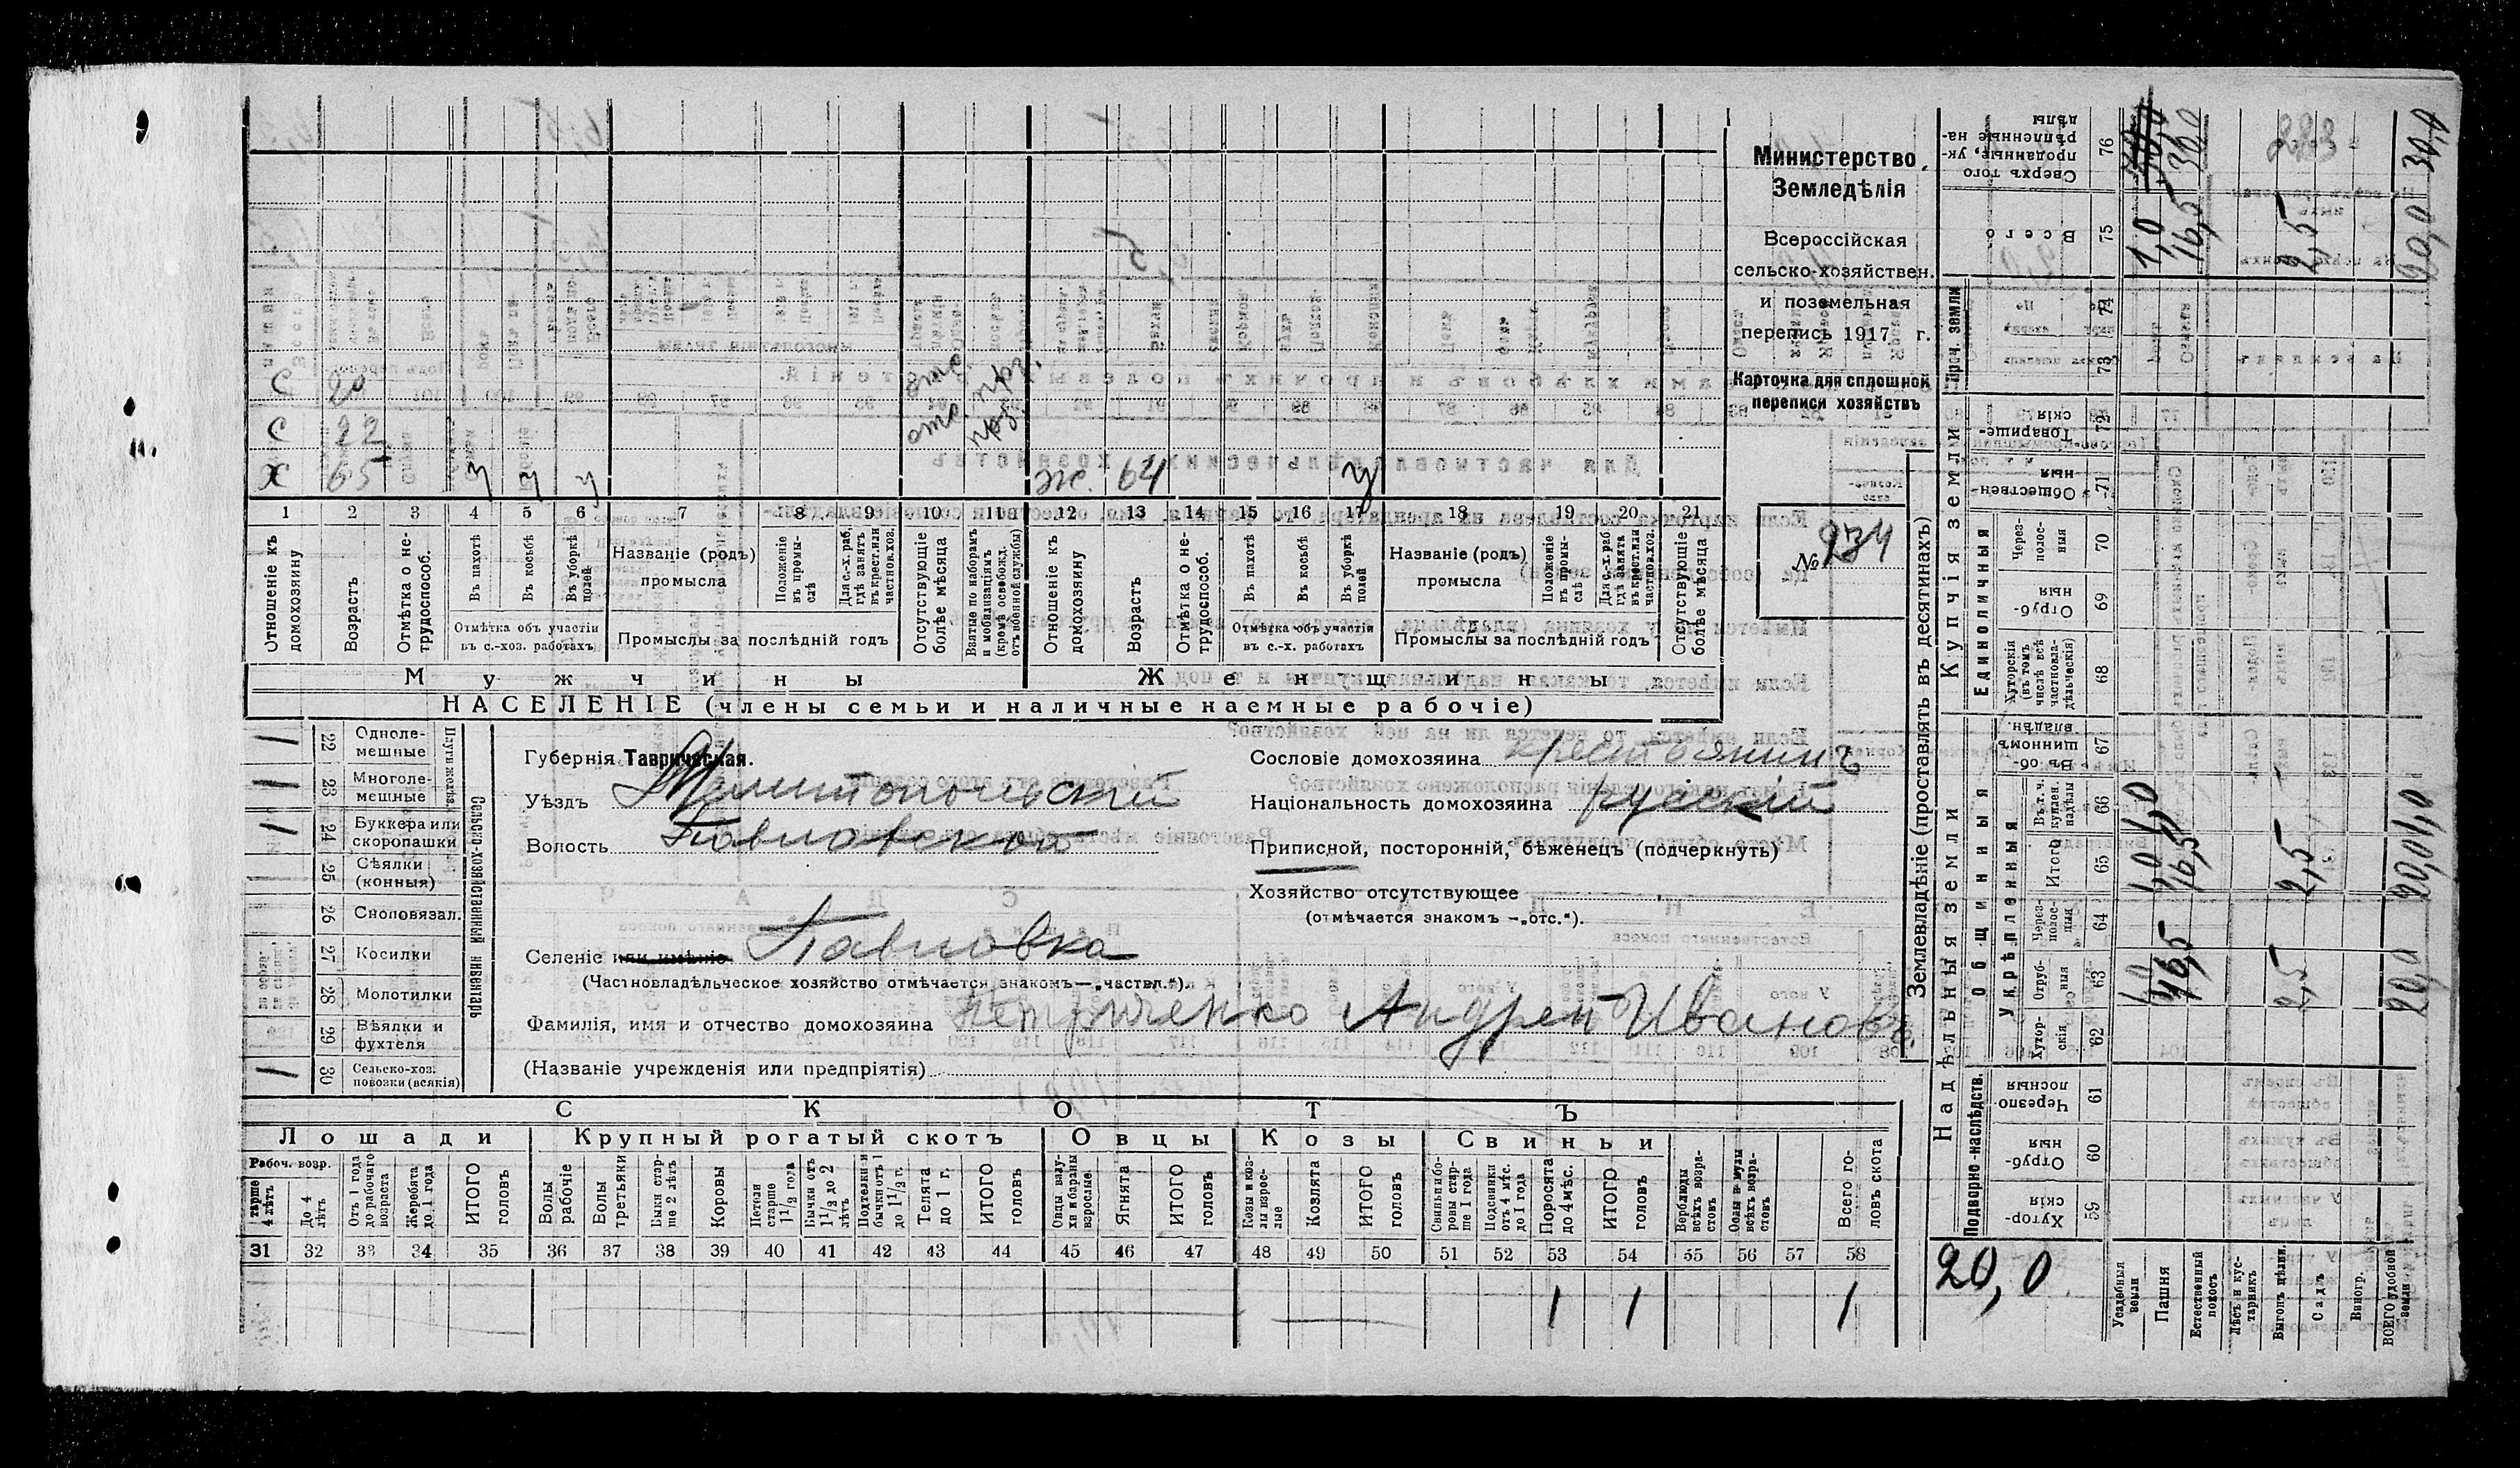 С 20 отс. прз.
С 22 отс. прз.
Х 65 у у у ж. 64 у
1 2 3 4 5 6 7 8 9 10 11 12 13 14 15 16 17 18 19 20 21
Отношеніе къ домохозяину
Возрастъ
Отмѣтка о нетрудоспособ.
Въ пахотѣ
Въ косьбѣ
Въ уборкѣ полей
Отмѣтка объ участіи въ с.-хоз. работахъ
Названіе (родъ) промысла
Положеніе въ промыслѣ
Для с.-х. раб. гдѣ занятъ въ крест. или частнов. хоз.
Промыслы за послѣдній годъ
Отсутствующіе болѣе мѣсяца
Взятые по наборамъ и мобилизаціямъ (кромѣ освобожд. отъ военной службы)
Отношеніе къ домохозяину
Возрастъ
Отмѣтка о нетрудоспособ.
Въ пахотѣ
Въ косьбѣ
Въ уборкѣ полей
Отмѣтка объ участіи въ с.-х. работахъ
Названіе (родъ) промысла
Положеніе въ промыслѣ
Для с.-х. раб. гдѣ занята въ крест. или частнов. хоз.
Промыслы за послѣдній годъ
Отсутствующіе болѣе мѣсяца
Мужчины
Женщины
НАСЕЛЕНІЕ (члены семьи и наличные наемные рабочіе)
Министерство
Земледѣлія
Всероссійская
сельско-хозяйствен.
и поземельная
перепись 1917 г.
Карточка для сплошной
переписи хозяйствъ
№ 234
1 22 Однолемешные
1 23 Многолемешные
1 24 Буккера или скоропашки
25 Сѣялки (конныя)
26 Сноповязал.
27 Косилки
28 Молотилки
29 Вѣялки и фухтеля
1 30 Сельско-хоз. повозки (всякія)
Сельско-хозяйственный инвентарь
Губернія Таврическая.
Уѣздъ Мелитопольскій
Волость Павловской
Селеніе или имѣніе Павловка
(Частновладѣльческое хозяйство отмѣчается знакомъ—„частвл.“).
Сословіе домохозяина крестьянинъ
Національность домохозяина русскій
Приписной, посторонній, бѣженецъ (подчеркнуть)
Хозяйство отсутствующее
(отмѣчается знакомъ —„отс.“).
Фамилія, имя и отчество домохозяина Петриченко Андрей Иванов.
(Названіе учрежденія или предпріятія)
СКОТЪ
Лошади
Крупный рогатый скотъ
Овцы
Козы
Свиньи
Рабоч. возр.
старше 4 лѣтъ
До 4 лѣтъ
Отъ 1 года до рабочаго возраста
Жеребята до 1 года
ИТОГО головъ
Волы рабочіе
Волы третьяки
Быки старше 2 лѣтъ
Коровы
Нетели старше 1 1/2 года
Бычки отъ 1 1/2 до 2 лѣтъ
Подтелки и бычки отъ 1 до 1 1/2 г.
Телята до 1 г.
ИТОГО головъ
Овцы валухи и бараны взрослые
Ягнята
ИТОГО головъ
Козы и козлы взрослые
Козлята
ИТОГО головъ
Свиньи боровы старше 1 года
Подсвинки отъ 4 мѣс. до 1 года
Поросята до 4 мѣс.
ИТОГО головъ
Верблюды всѣхъ возрастовъ
Ослы и мулы всѣхъ возрастовъ
Всего головъ скота
31 32 33 34 35 36 37 38 39 40 41 42 43 44 45 46 47 48 49 50 51 52 53 54 55 56 57 58
1 1 1
Землевладѣніе (проставлять въ десятинахъ)
Надѣльныя земли
Купчія земли
Проч. земли
Подворно-наслѣдств.
Общинныя
Укрѣпленныя
Единоличныя
Сверхъ того проданные, укрѣпленные надѣлы 76
Всего 75
74
73
Товарищескія 72
Общественныя 71
Черезполосныя 70
Отрубныя 69
Хуторскія (въ томъ числѣ всѣ частновладѣльческія) 68
Въ общинномъ владѣн. 67
Въ т. ч. куплен. надѣлы 66
Итого 65
Черезполосныя 64
Отрубныя 63
Хуторскія 62
Черезполосныя 61
Отрубныя 60
Хуторскія 59
20,0
Усадебныя земли
Пашня
Естественный покосъ
Лѣсъ и кустарникъ
Выгонъ цѣлин.
Садъ
Виногр.
ВСЕГО удобной земли
30,0
1,0
16,5
2,5
20,0
30,0
1,0
16,5
2,5
20,0
16,5
2,5
20,0